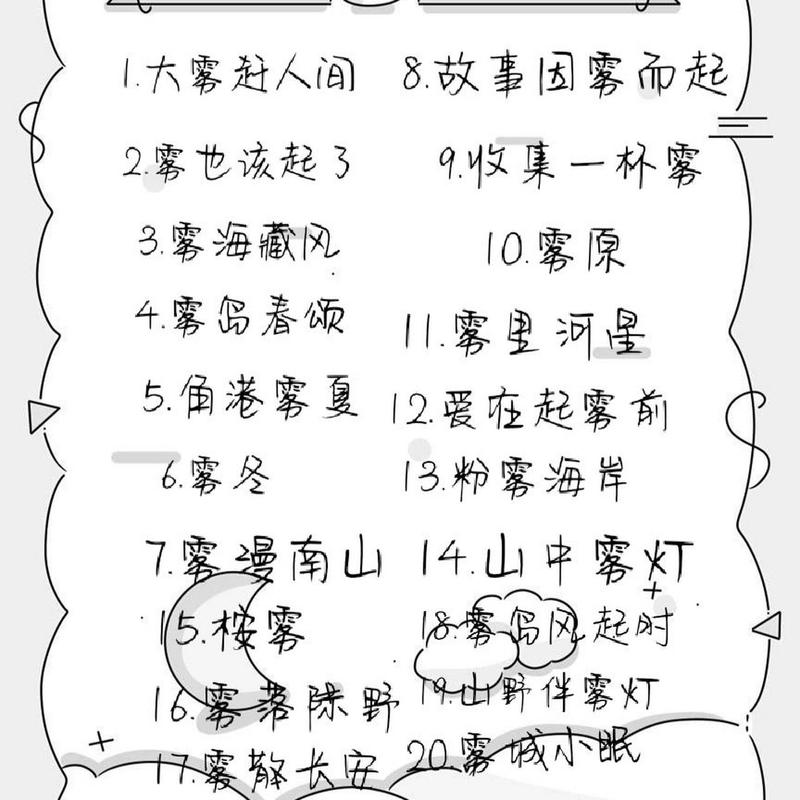 1.大雾赶人间
2.雾也该起了
3.雾海藏风
4.雾岛春颂
5.角港雾夏
6.雾冬
7.雾漫南山
15.桉雾
16.雾落陈野
17.雾散长安
8.故事因雾而起
9.收集一杯雾
10.雾原
11.雾里河星
12.爱在起雾前
13.粉雾海岸
14.山中雾灯
18.雾岛风起时
19.山野伴雾灯
20.雾城小眠